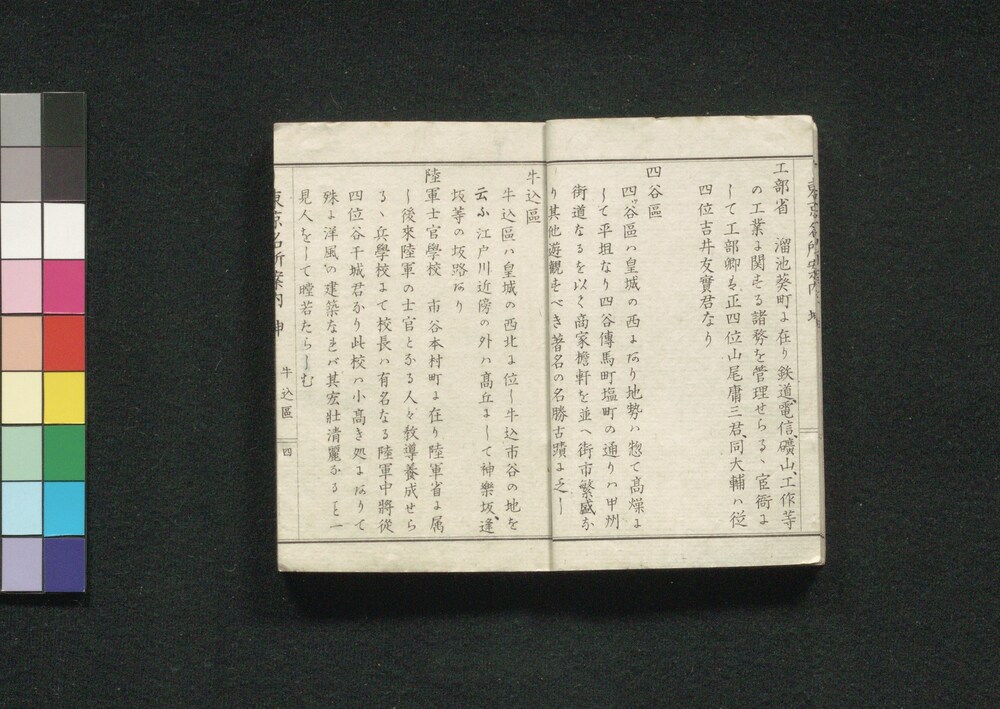 工部省　溜池葵町に在り鉄道、電信、礦山、工作等
の工業に関する諸務を管理せらるゝ官衙に
して工部卿は正四位山尾庸三君、同大輔ハ従
四位吉井友實君なり
四谷區
四ッ谷區ハ皇城の西にあり地勢ハ惣て高燥に
して平坦なり四谷傳馬町塩町の通りハ甲州
街道なるを以て商家檐軒を並へ街市繁盛な
り其他遊観すべき著名の名勝古蹟に乏し
牛込區
牛込區ハ皇城の西北に位し牛込市谷の地を
云ふ江戸川近傍の外ハ高丘にして神樂坂、逢
坂等の坂路あり
陸軍士官學校　市谷本村町に在り陸軍省に属
し後來陸軍の士官となる人々を教導養成せら
るゝ兵學校にて校長ハ有名なる陸軍中將從
四位谷干城君なり此校ハ小高き処にありて
殊に洋風の建築なれバ其宏壮清麗なること一
見人をして瞠若たらしむ
東京名所案内
牛込區
四